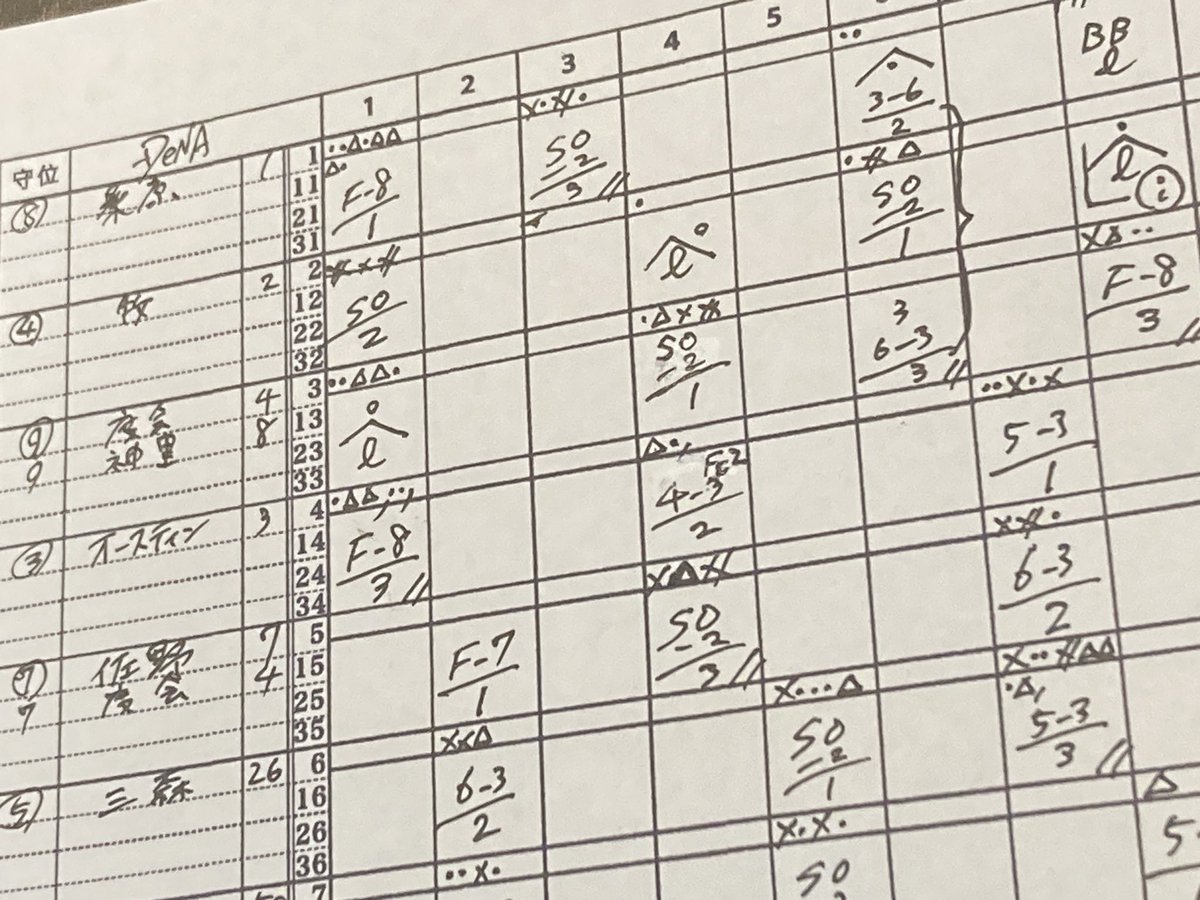 1
2
3
4
5
守位
DeNA
⑧ 桑原 1
1 11 21 31
F-8 1
SO 2 3
3-6 2
BB l
④ 牧 2
2 12 22 32
SO 2
l
SO 2 1
l i
⑨ 度会 4
9 神里 8
3 13 23 33
l
SO 2 1
3 6-3 3
F-8 3
③ オースティン 3
4 14 24 34
F-8 3
4-3 2
5-3 1
⑦ 佐野 7
7 度会 4
5 15 25 35
F-7 1
SO 2 3
6-3 2
⑤ 三森 26
6 16 26 36
6-3 2
SO 2 1
5-3 3
7
SO
5